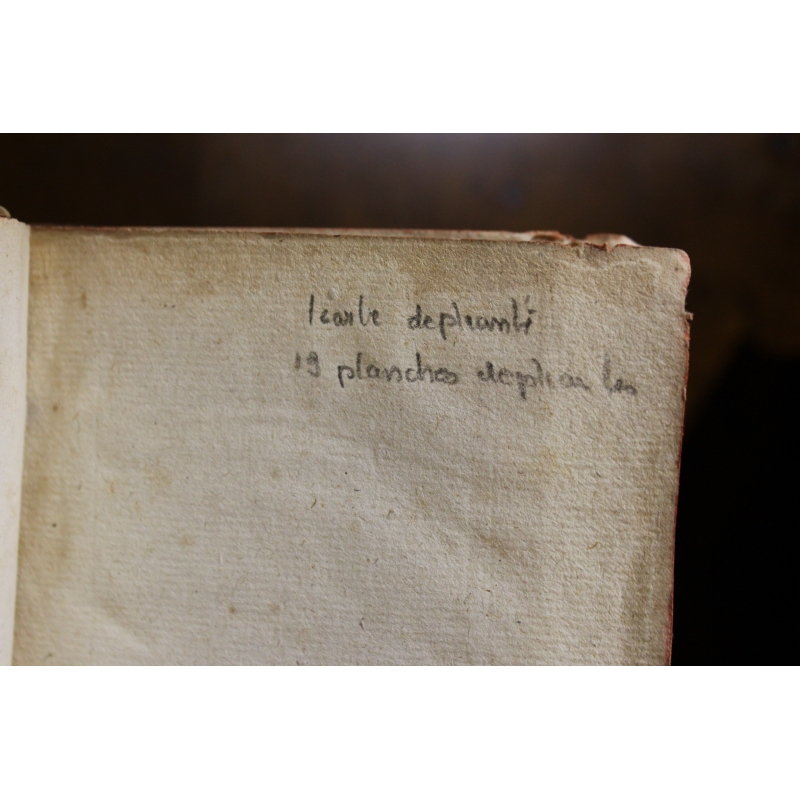 1 carte depliante
19 planches depliantes